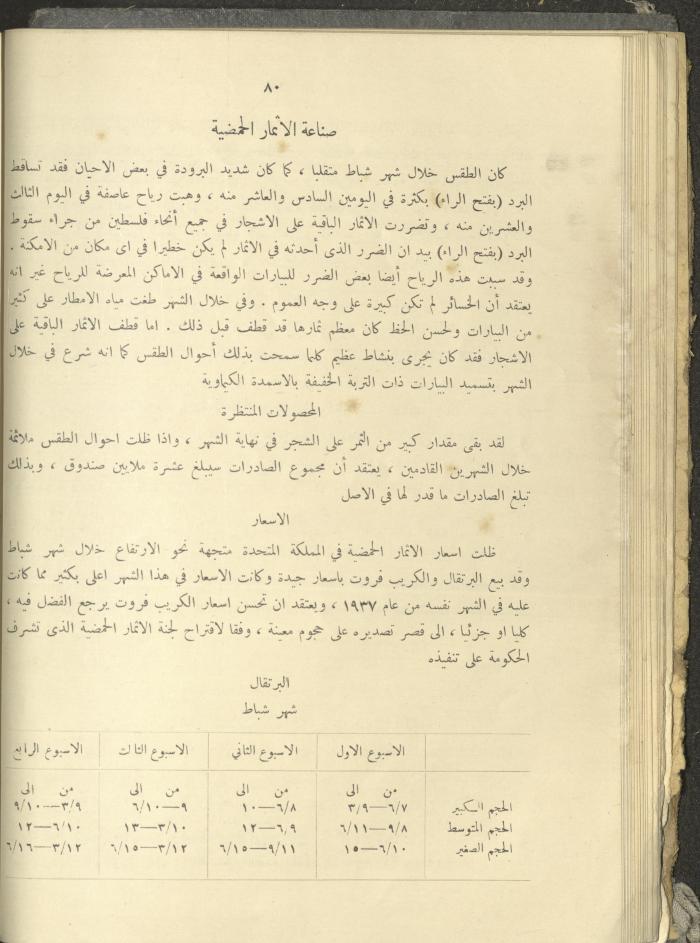 ٨٠
صناعة الاثمار الحمضية
كان الطقس خلال شهر شباط متقلبا ، كما كان شديد البرودة في بعض الاحيان فقد تساقط
البرد (بفتح الراء) بكثرة في اليومين السادس والعاشر منه ، وهبت رياح عاصفة في اليوم الثالث
والعشرين منه ، وتضررت الاثمار الباقية على الاشجار في جميع أنحاء فلسطين من جراء سقوط
البرد (بفتح الراء) بيد ان الضرر الذى أحدثه في الاثمار لم يكن خطيرا في اى مكان من الامكنة .
وقد سببت هذه الرياح أيضا بعض الضرر للبيارات الواقعة في الاماكن المعرضة للرياح غير انه
يعتقد أن الخسائر لم تكن كبيرة على وجه العموم . وفي خلال الشهر طغت مياه الامطار على كثير
من البيارات ولحسن الحظ كان معظم ثمارها قد قطف قبل ذلك . اما قطف الاثمار الباقية على
الاشجار فقد كان يجرى بنشاط عظيم كلما سمحت بذلك أحوال الطقس كما انه شرع في خلال
الشهر بتسميد البيارات ذات التربة الخفيفة بالاسمدة الكيماوية
المحصولات المنتظرة
لقد بقى مقدار كبير من الثمر على الشجر في نهاية الشهر ، واذا ظلت احوال الطقس ملائمة
خلال الشهرين القادمين ، يعتقد أن مجموع الصادرات سيبلغ عشرة ملايين صندوق ، وبذلك
تبلغ الصادرات ما قدر لها في الاصل
الاسعار
ظلت اسعار الاثمار الحمضية في المملكة المتحدة متجهة نحو الارتفاع خلال شهر شباط
وقد بيع البرتقال والكريب فروت باسعار جيدة وكانت الاسعار في هذا الشهر اعلى بكثير مما كانت
عليه في الشهر نفسه من عام ١٩٣٧ ، ويعتقد ان تحسن اسعار الكريب فروت يرجع الفضل فيه ،
كليا او جزئيا ، الى قصر تصديره على حجوم معينة ، وفقا لاقتراح لجنة الاثمار الحمضية الذى تشرف
الحكومة على تنفيذه
البرتقال
شهر شباط
الاسبوع الاول الاسبوع الثاني الاسبوع الثالث الاسبوع الرابع
من الى من الى من الى من الى
الحجم الكبير ٦/٧—٣/٩ ٦/٨—١٠ ٩—٦/١٠ ٣/٩—٩/١٠
الحجم المتوسط ٩/٨—٦/١١ ٦,٩—١٢ ٣/١٠—١٣ ٦/١٠—١٢
الحجم الصغير ٦/١٠—١٥ ٩/١١—٦/١٥ ٣/١٢—٦/١٥ ٣/١٢—٦/١٦